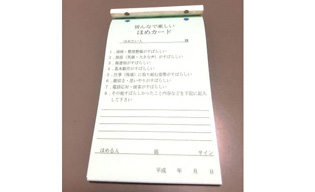 皆んなで楽しい
ほめカード
ほめたい人 様
1．掃除・整理整頓がすばらしい
2．挨拶（笑顔・大きな声）がすばらしい
3．報連相がすばらしい
4．基本動作がすばらしい
5．仕事（現場）に取り組む姿勢がすばらしい
6．親切さ・思いやりがすばらしい
7．電話応対・接客がすばらしい
8．その他すばらしかったことの内容などを下記に記入
して下さい
ほめる人 様 サイン
平成 年 月 日